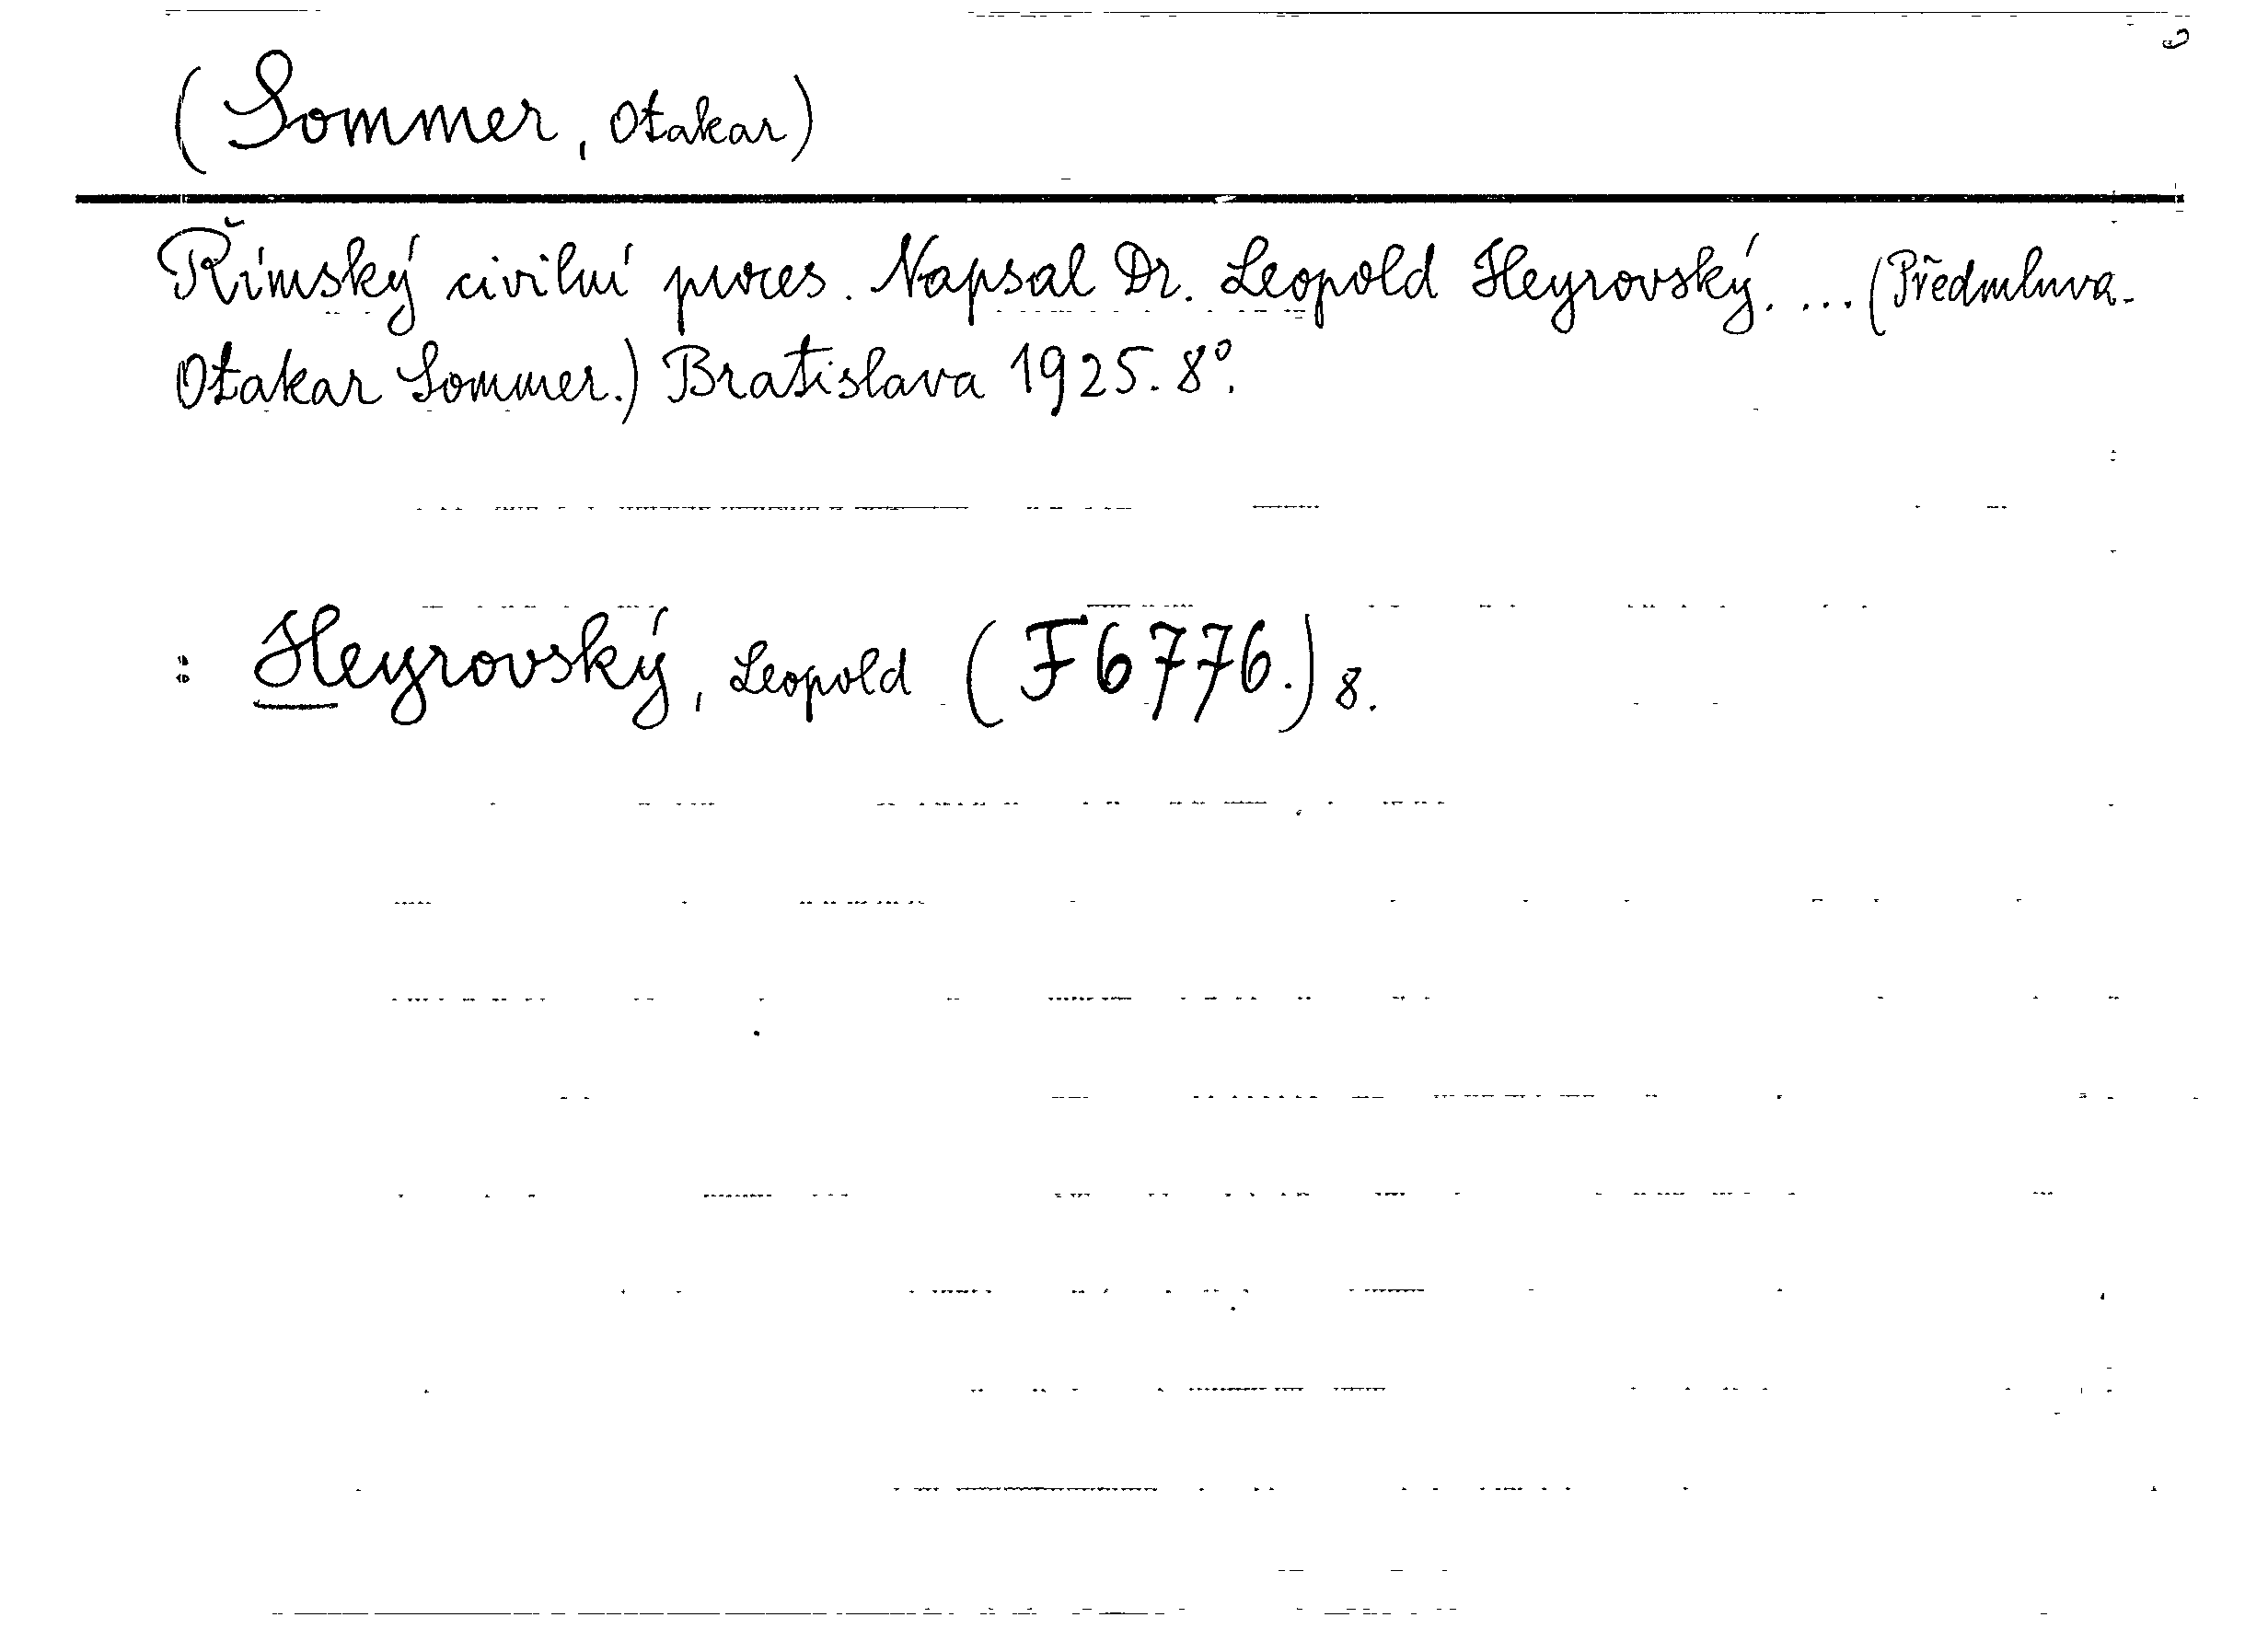 (Sommer, Otakar)
Římský civilní proces. Napsal Dr. Leopold Heyrovský. ... (Předmluva-
Otakar Sommer.) Bratislava 1925. 8°.
: Heyrovský, Leopold (F 6776.) 8.